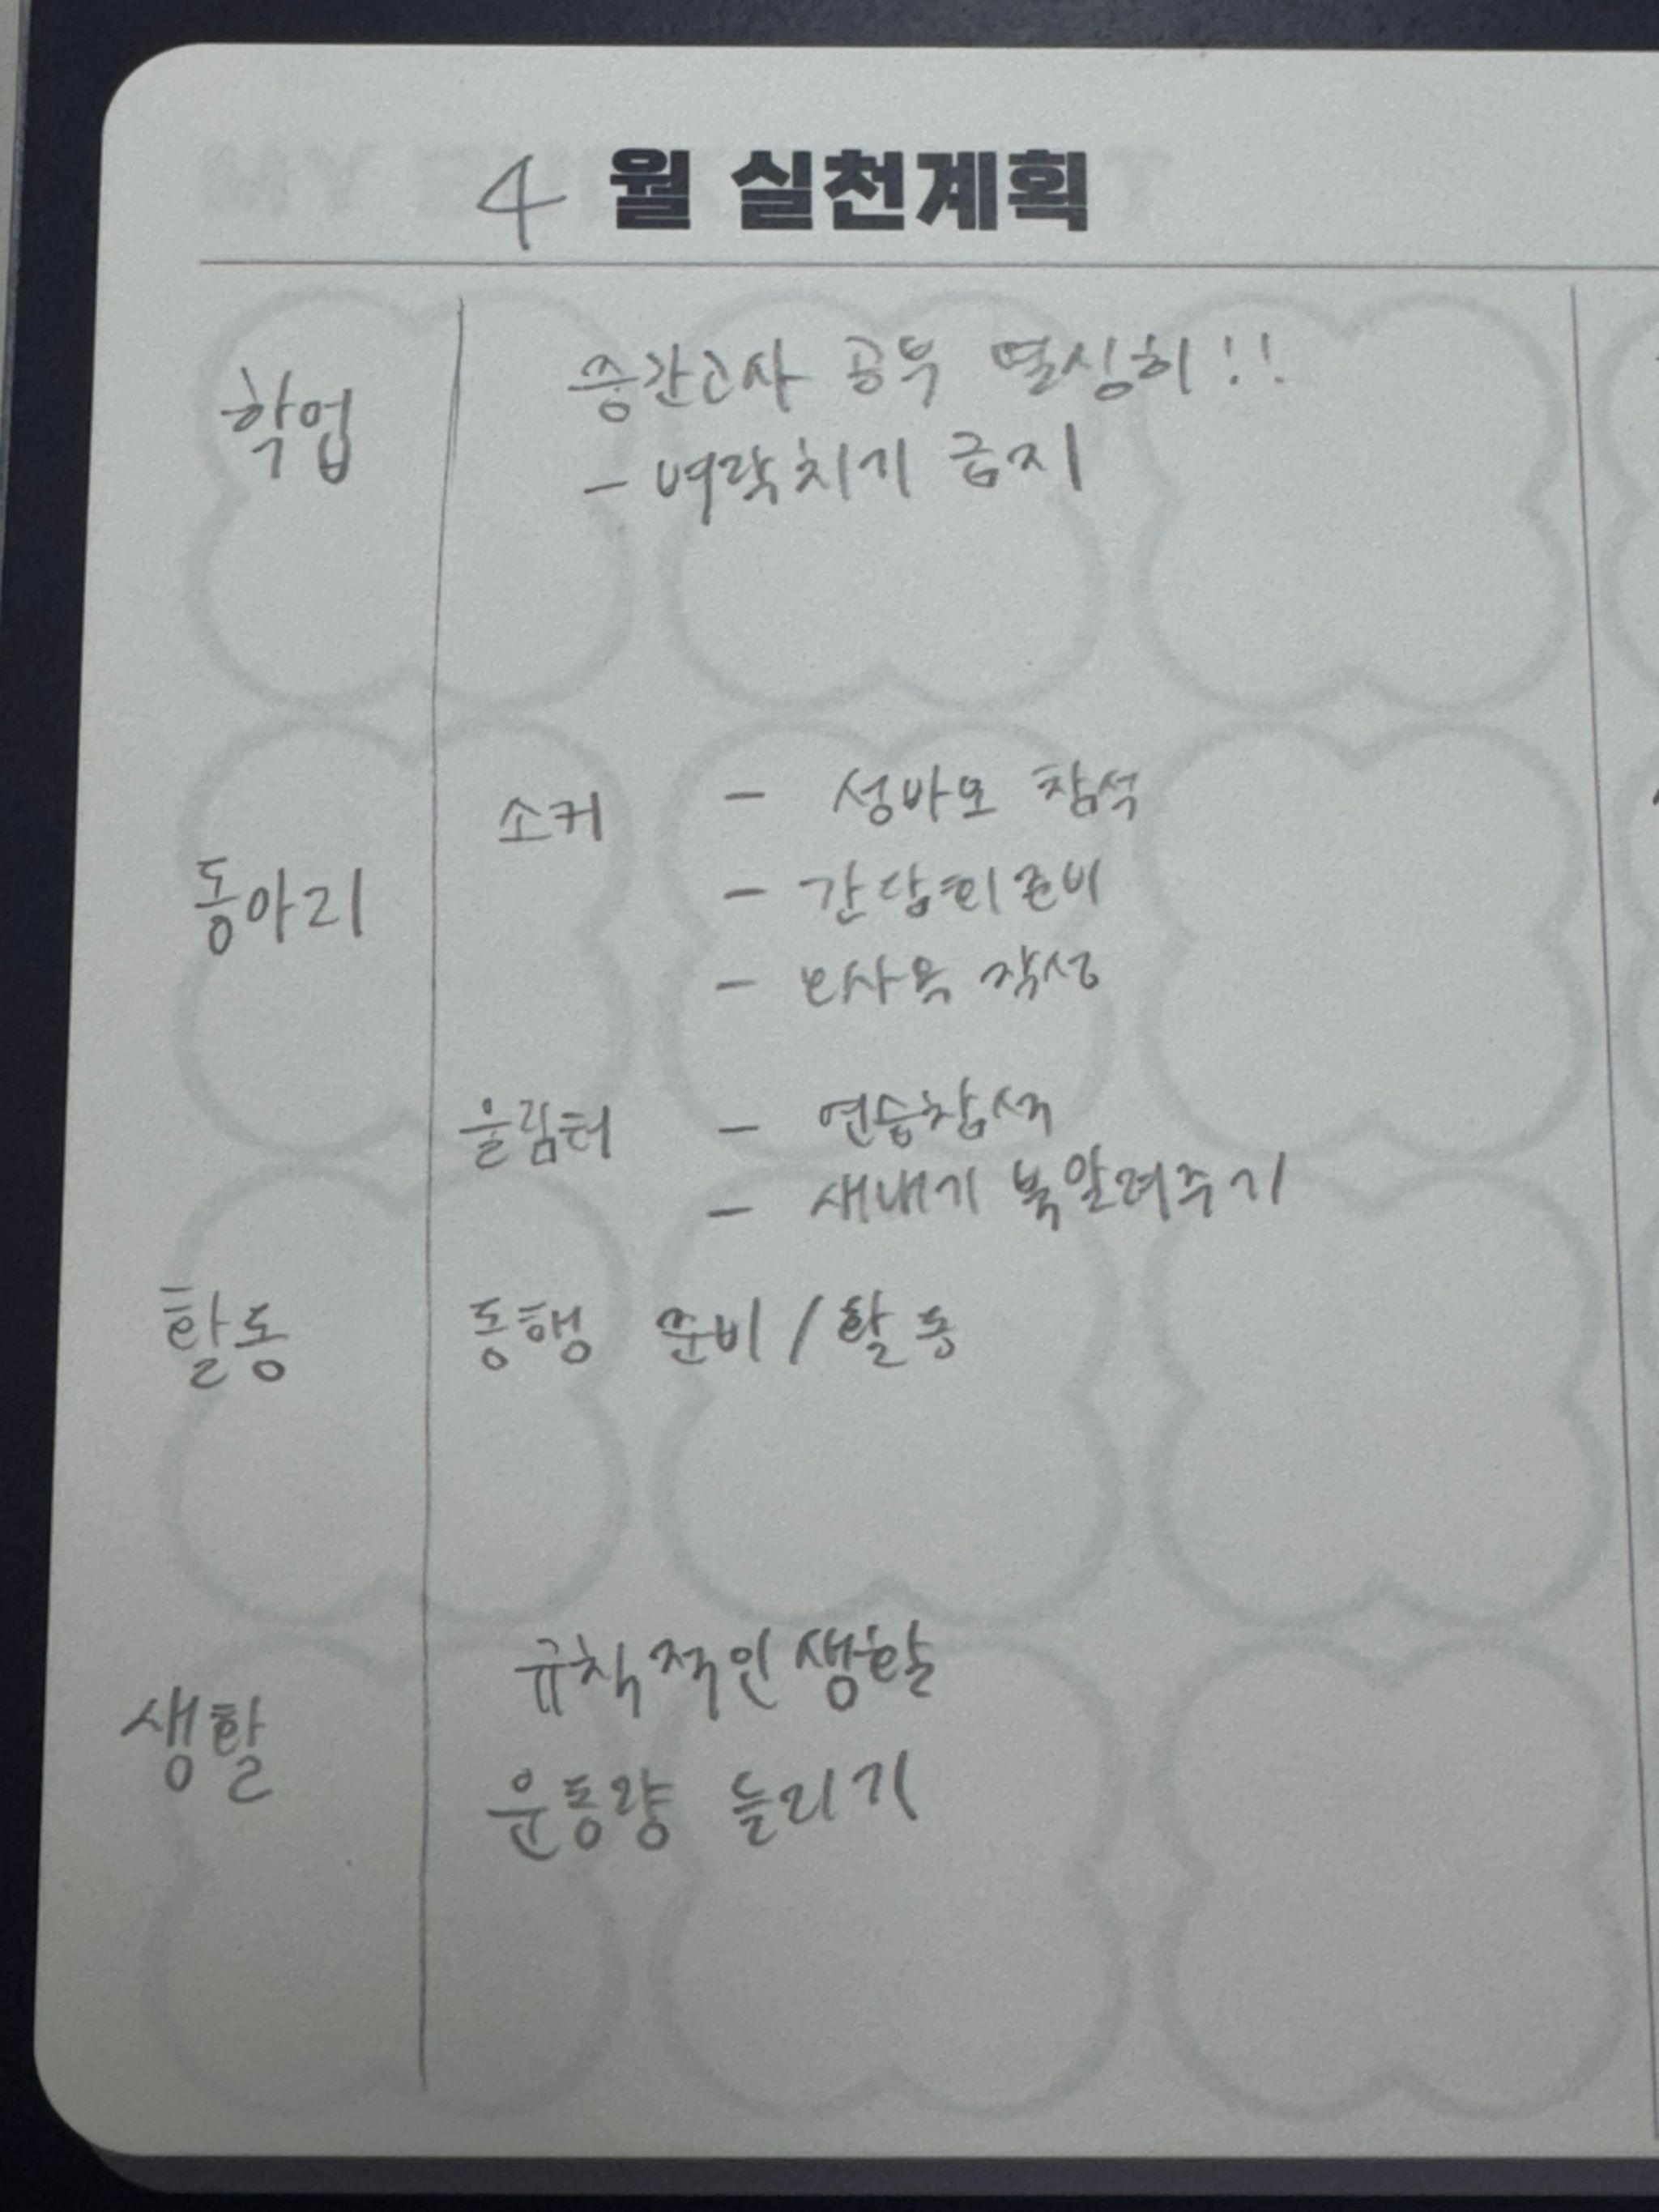 4월 실천계획
학업
중간고사 공부 열심히!!
- 벼락치기 금지
동아리
소커 - 성바오 참석
- 간담회 준비
- 작성
울림터 - 연습참석
- 새내기 북알려주기
활동 동행 준비/활동
생활
규칙적인 생활
운동량 늘리기